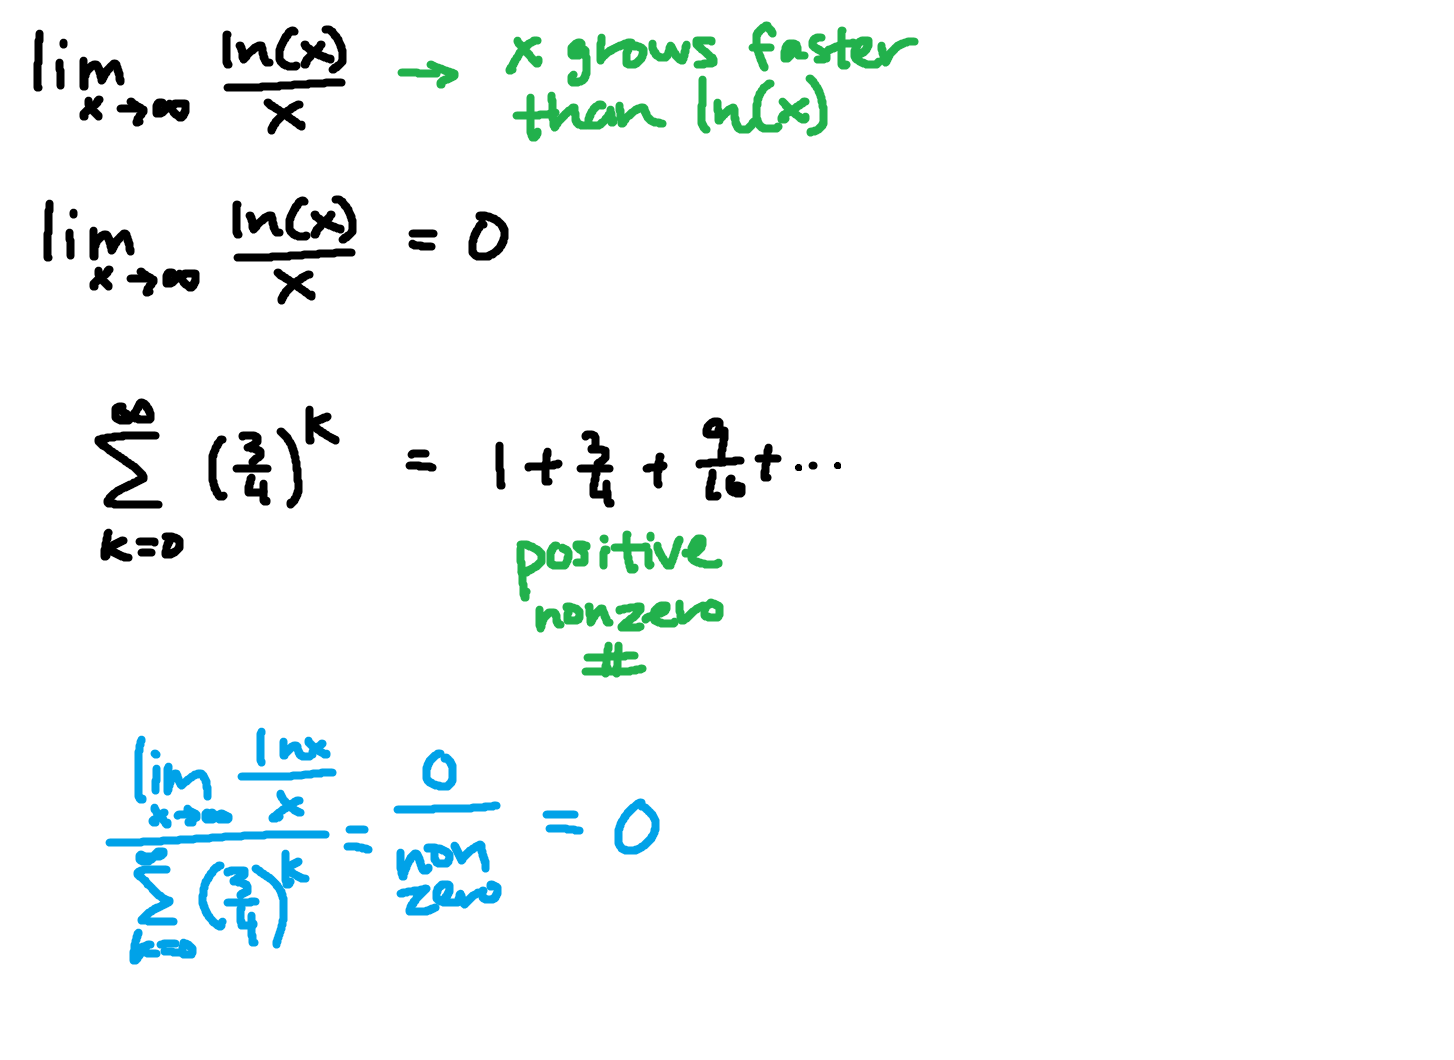 lim x→∞ ln(x)/x → x grows faster than ln(x)
lim x→∞ ln(x)/x = 0
∞ ∑ k=0 (3/4)^k = 1 + 3/4 + 9/16 + ...
positive
nonzero
#
lim x→∞ lnx/x / ∞ ∑ k=0 (3/4)^k = 0/non zero = 0